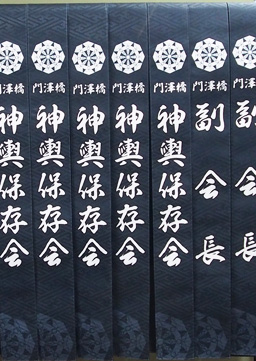 門澤橋
神輿保存会
門澤橋
神輿保存会
門澤橋
神輿保存会
門澤橋
神輿保存会
門澤橋
神輿保存会
門澤橋
副会長
門澤橋
副会長